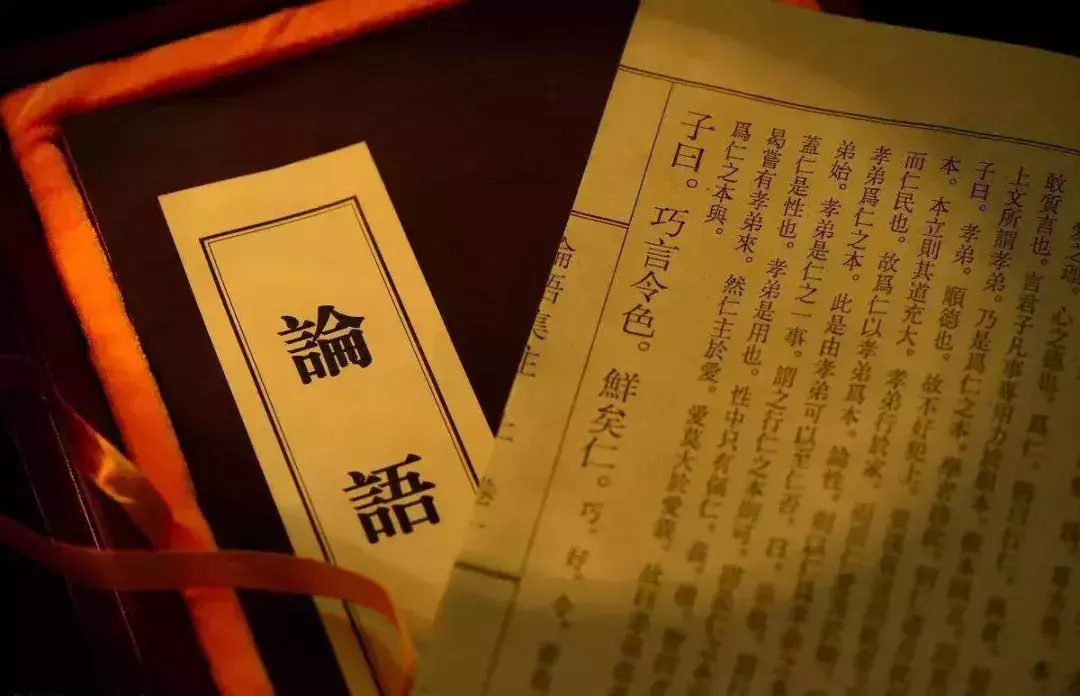 論語
之理。心之德也。爲仁。
敢質言也。言君子凡事專用力於根本。
上文所謂孝弟。乃是爲仁之本。學者務此。
子曰。孝弟。順德也。故不好犯上。
本。本立則其道充大。孝弟行於家。
而仁民也。故爲仁以孝弟爲本。論性。則以仁爲孝弟
孝弟爲仁之本。此是由孝弟可以至仁否。曰。非也。
弟始。孝弟是仁之一事。謂之行仁之本則可。謂是仁之本
蓋仁是性也。孝弟是用也。性中只有個仁。義。禮。智
曷嘗有孝弟來。然仁主於愛。愛莫大於愛親。故曰
爲仁之本與。
子曰。巧言令色。鮮矣仁。巧。好。令。
論語集注